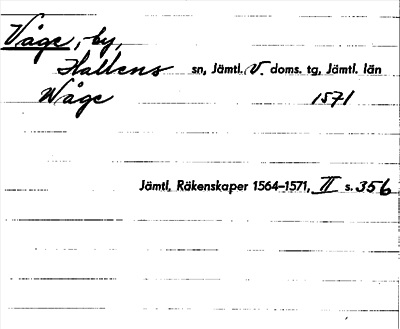 Våge, by,
Hallens sn, Jämtl. V. doms. tg, Jämtl. län
Wåge 1571
Jämtl. Räkenskaper 1564–1571, II s. 356